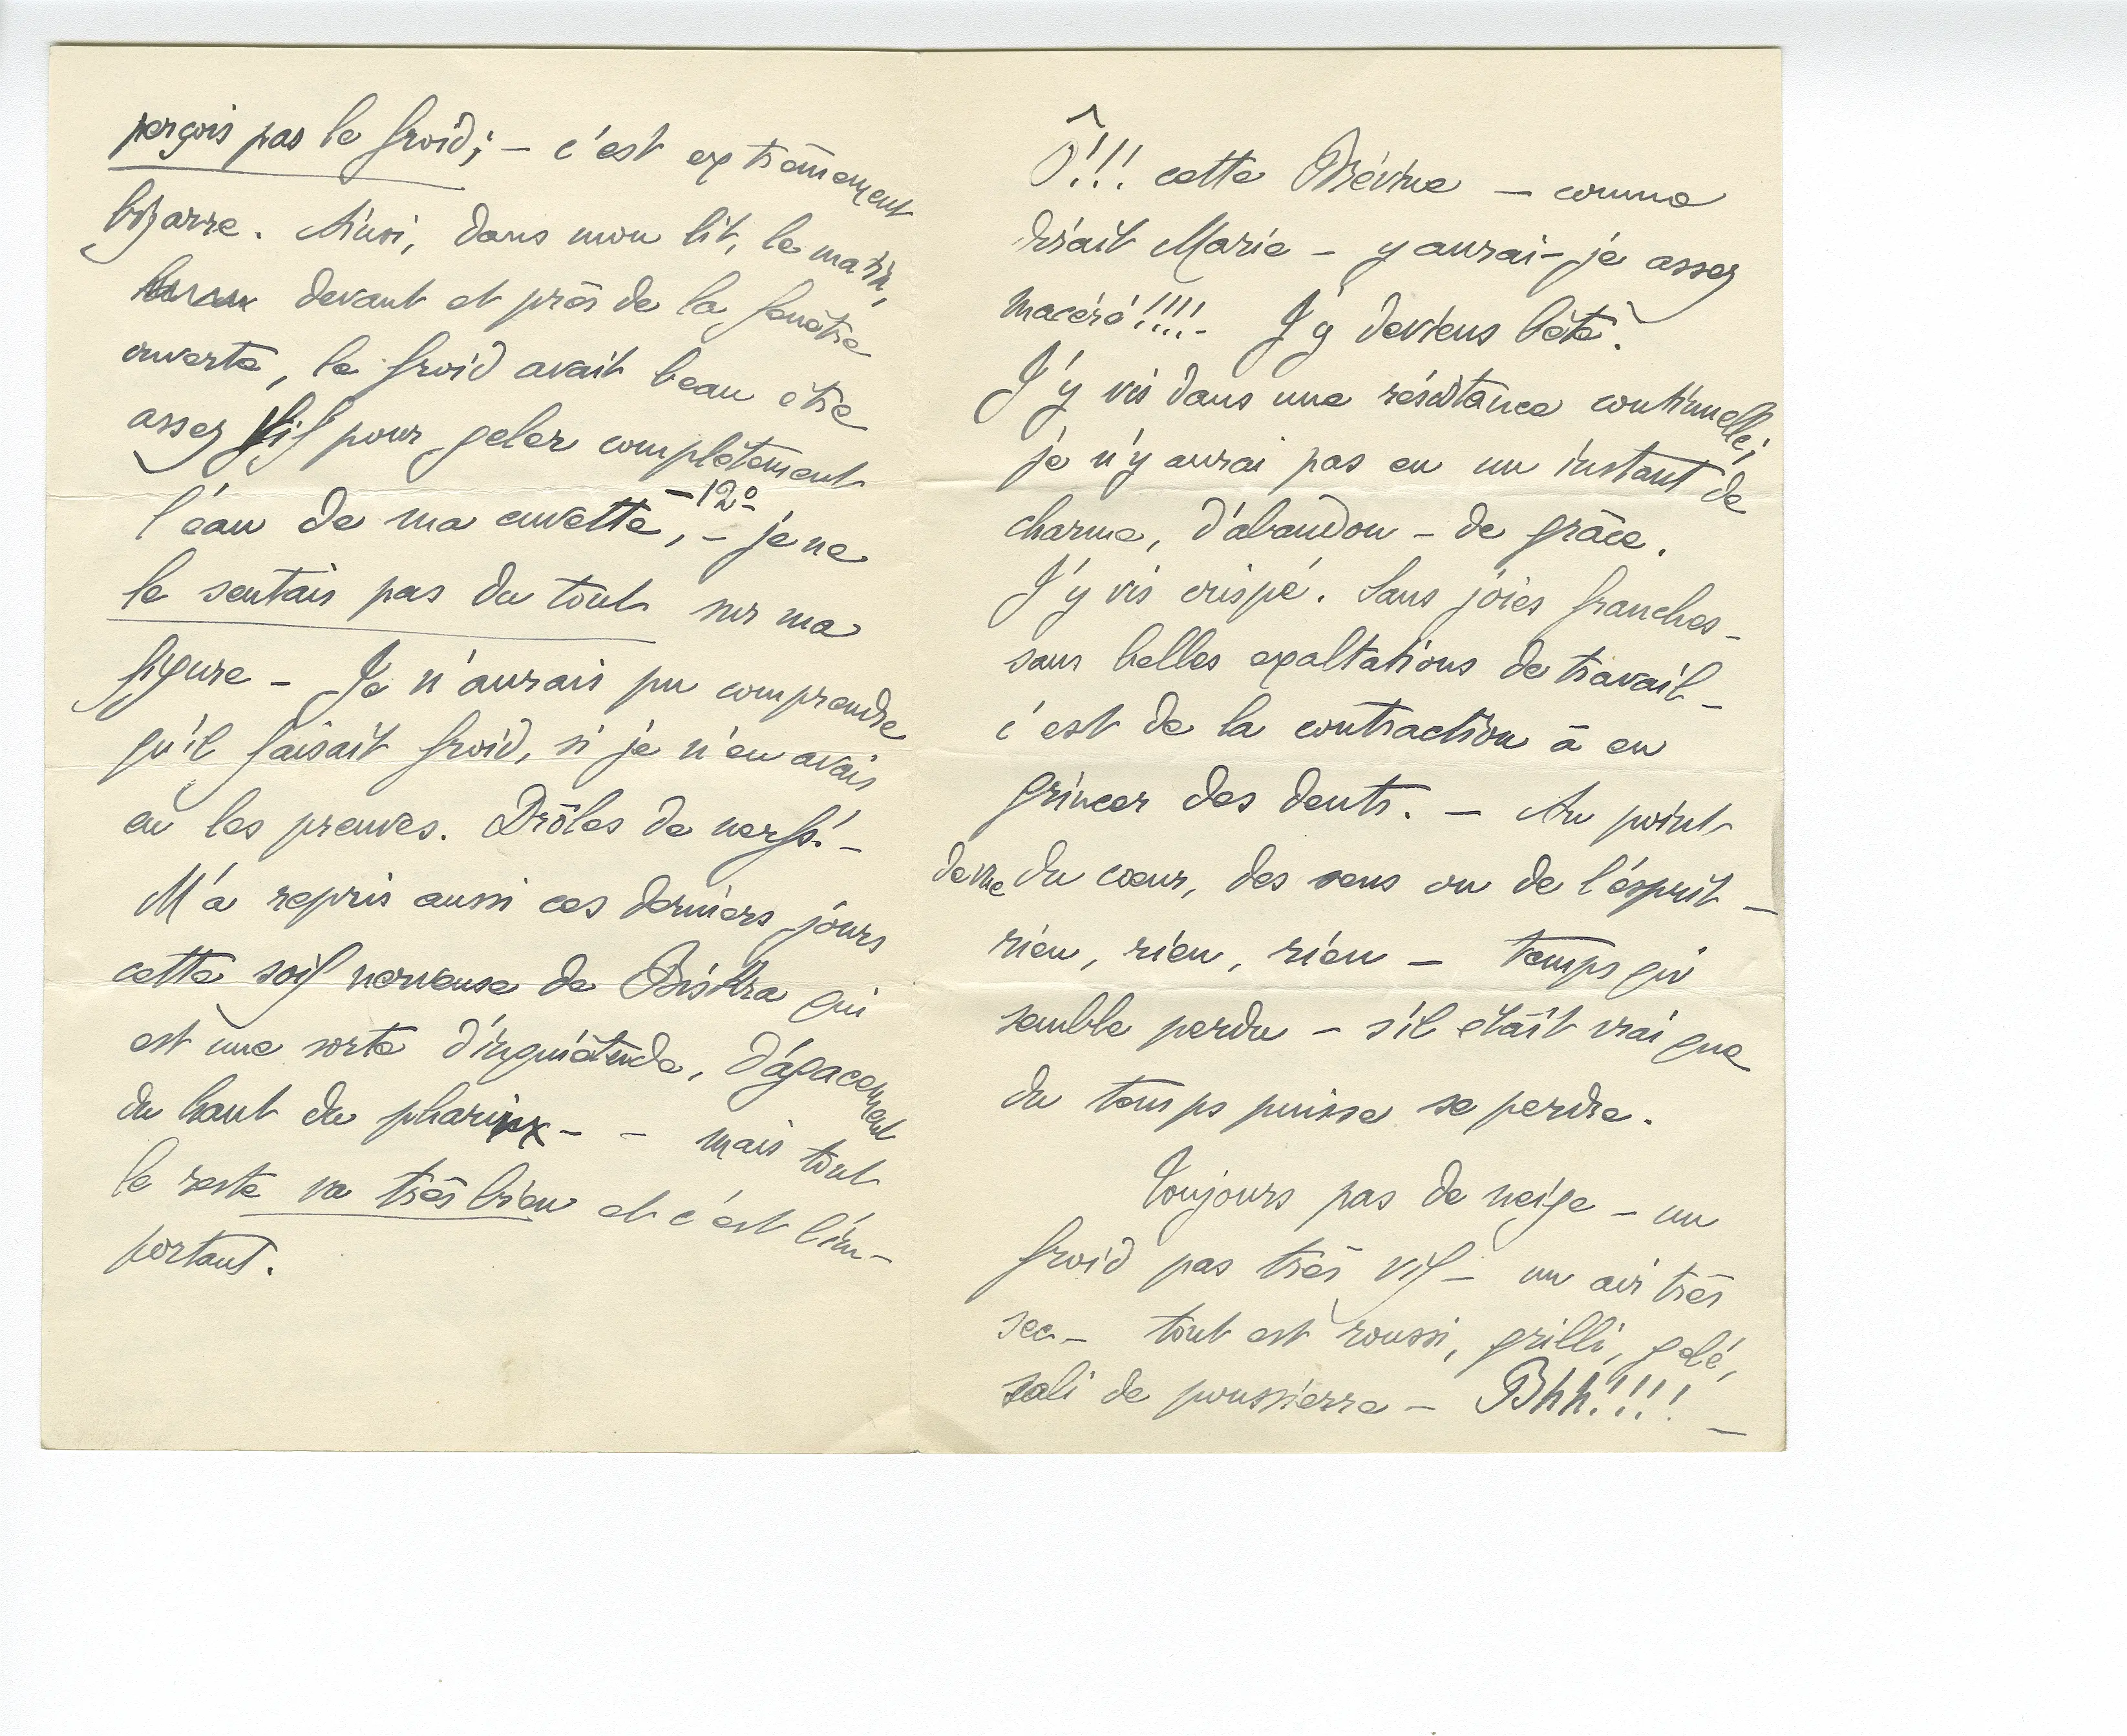 perçois pas le froid; – c'est extrêmement
bizarre. Ainsi, dans mon lit, le matin,
devant et près de la fenêtre
ouverte, le froid avait beau être
assez vif pour geler complètement
l'eau de ma cuvette, –12° – je ne
le sentais pas du tout sur ma
figure – Je n'aurais pu comprendre
qu'il faisait froid, si je n'en avais
eu les preuves. Drôles de nerfs! –
M'a repris aussi ces derniers jours
cette soif nerveuse de Biskra qui
est une sorte d'inquiétude, d'agacement
du haut du pharinx – – mais tout
le reste va très bien et c'est l'im-
portant.
Ô!!! cette Brévine – comme
dirait Marie – y aurai-je assez
macéré!!!!- J'y deviens bête.
J'y vis dans une résistance continuelle;
je n'y aurai pas eu un instant de
charme, d'abandon – de grâce.
J'y vis crispé. Sans joies franches –
sans belles exaltations de travail –
c'est de la contraction à en
grincer des dents. – Au point
de vue du cœur, des sens ou de l'esprit –
rien, rien, rien – temps qui
semble perdu – s'il était vrai que
du temps puisse se perdre.
Toujours pas de neige – un
froid pas très vif – un air très
sec – tout est roussi, grillé, gelé,
sali de poussierre – Bhh!!!! –